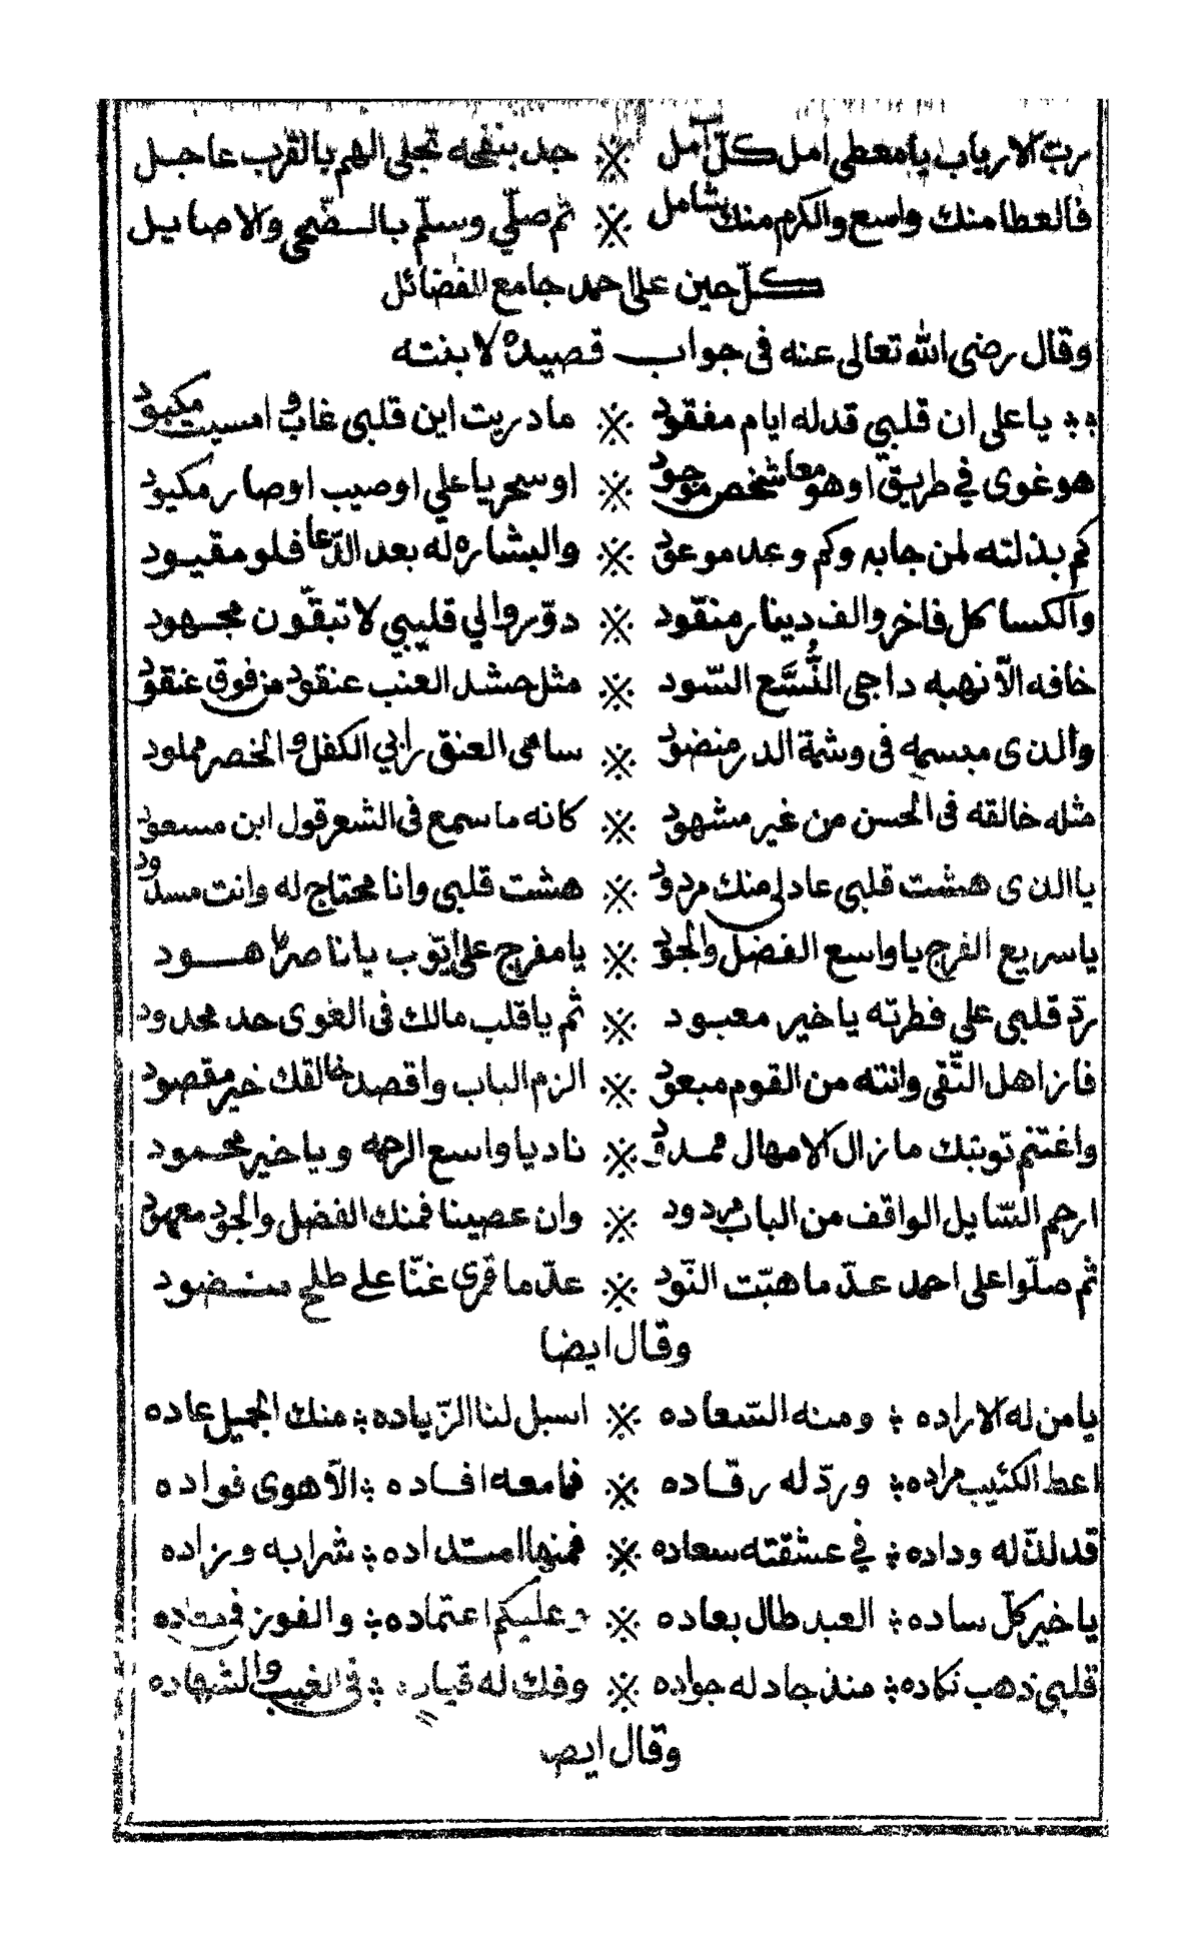 رب الارباب يا معطى امل كلّ آمل ※ جد بنفحه تجلى الهم بالقرب عاجل
فالعطا منك واسع والكرم منك شامل ※ ثم صلّي وسلّم بالضّحى والاصايل
كلّ حين على احمد جامع الفضائل
وقال رضى الله تعالى عنه فى جواب قصيدة لابنته
يا على ان قلبي قد له ايام مفقود ※ ما دريت اين قلبى غاب وامسيت مكبود
هو غوى في طريق اوهو معا شخص موجود ※ او سحر يا علي او صيب او صار مكيود
كم بذلته لمن جابه وكم وعد موعود ※ والبشاره له بعد الدّعا فلو مقيود
والكسا كل فاخر والف دينار منقود ※ دوّروا لي قليبي لا تبقّون مجهود
خافه الاّ نهبه داجى النُّسَّع السّود ※ مثل العنب عنقود من فوق عنقود
والذى مبسمه فى وشمة الدر منضود ※ سامى العنق رابي الكفل والخصر مملود
مثله خالقه فى الحسن من غير مشهود ※ كانه ما سمع فى الشعر قول ابن مسعود
يا الذى هشت قلبى عاد لى منك مردود ※ هشت قلبى وانا محتاج له وانت مسدود
يا سريع الفرج يا واسع الفضل والجود ※ يا مفرج على ايّوب يا ناصرًا هود
ردّ قلبى على فطرته يا خير معبود ※ ثم يا قلب مالك فى الغوى حد محدود
فاز اهل التّقى وانته من القوم مبعود ※ الزم الباب واقصد خالقك خير مقصود
واغتنم توبتك ما زال الامهال ممدود ※ ناد يا واسع الرحمه ويا خير محمود
ارحم السّايل الواقف من الباب مردود ※ وان عصينا فمنك الفضل والجود معهود
ثم صلّوا على احمد عدّ ما هبّت النّود ※ عدّ ما قمرى غنّا على طلح منضود
وقال ايضا
يا من له الاراده ؛ ومنه السّعاده ※ اسبل لنا الزّياده ؛ منك الجميل عاده
اعط الكئيب مراده ؛ وردّ له رقاده ※ فما معه افاده ؛ الاّ هوى فواده
قد لذّ له وداده ؛ في عشقته سعاده ※ فمنها استداده ؛ شرابه وزاده
يا خير كلّ ساده ؛ العبد طال بعاده ※ وعليكم اعتماده ؛ والفوز فى
قلبى ذهب نكاده ؛ منذ جاد له جواده ※ وفك له ؛ فى الغيب والشهاده
وقال ايض